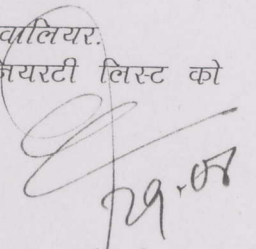 वालियर.
नियरटी लिस्ट को
29.08